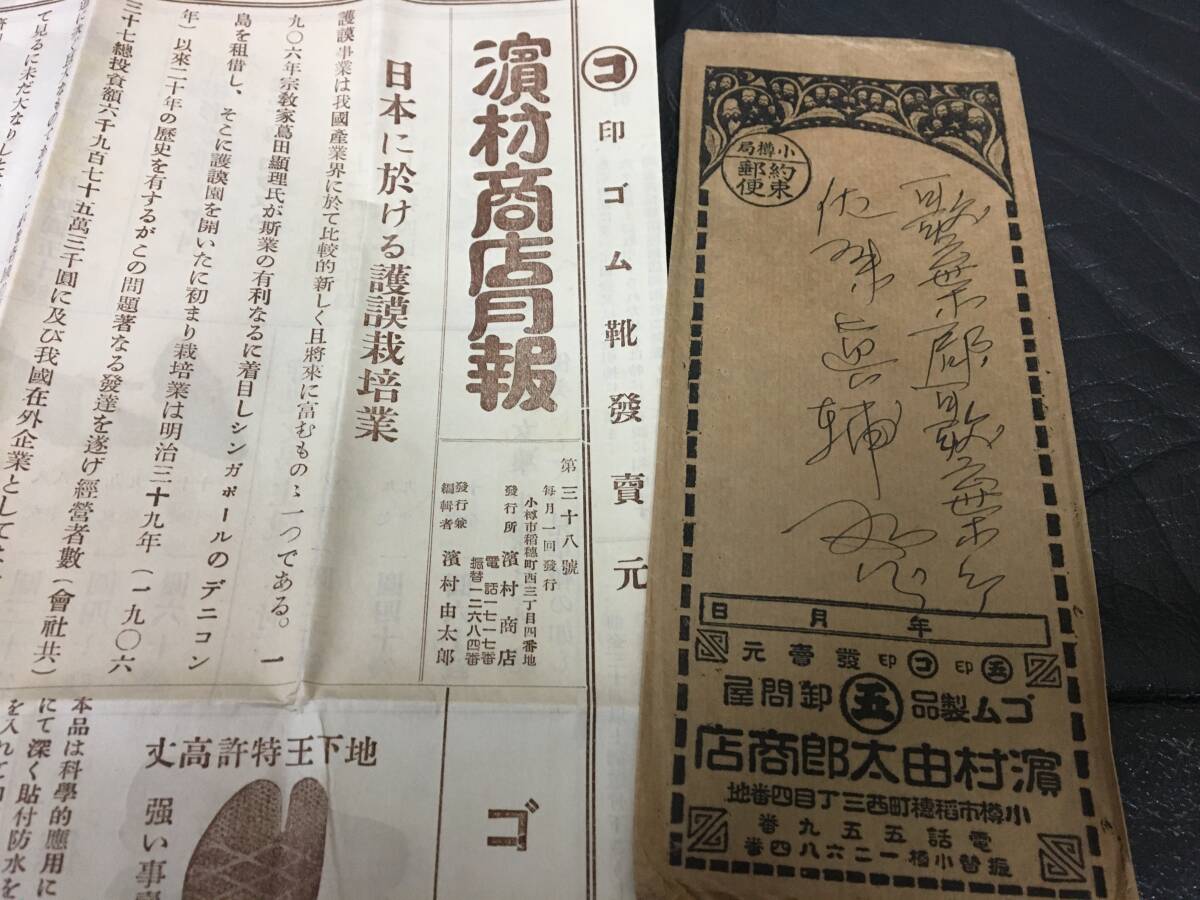 ㋙印ゴム靴發賣元
濱村商店月報
第三十八號
每月一回發行
小樽市稻穗町西三丁目四番地
發行所 濱村商店
電話一七一七番
振替一二六八四番
發行兼編輯者 濱村由太郎
日本に於ける護謨栽培業
護謨事業は我國產業界に於て比較的新しく且將來に富むものゝ一つである。一
九〇六年宗教家葛田顯理氏が斯業の有利なるに着目しシンガポールのデニコン
島を租借し、そこに護謨園を開いたに初まり栽培業は明治三十九年(一九〇六
年)以來二十年の歷史を有するがこの問題著なる發達を遂げ經營者數(會社共)
三十七總投資額六千九百七十五萬三千圓に及び我國在外企業として
て見るに未だ大なりし
ゴ
地下王特許高丈
本品は科學的應用に
にて深く貼付防水を
を入れて
强い事
小樽局
約束郵便
歌葉郡歌葉
佐 眞輔
年 月 日
㊄印㋙印發賣元
ゴム製品㊄卸問屋
濱村由太郎商店
小樽市稻穗町西三丁目四番地
電話五五九番
振替小樽一二六八四番